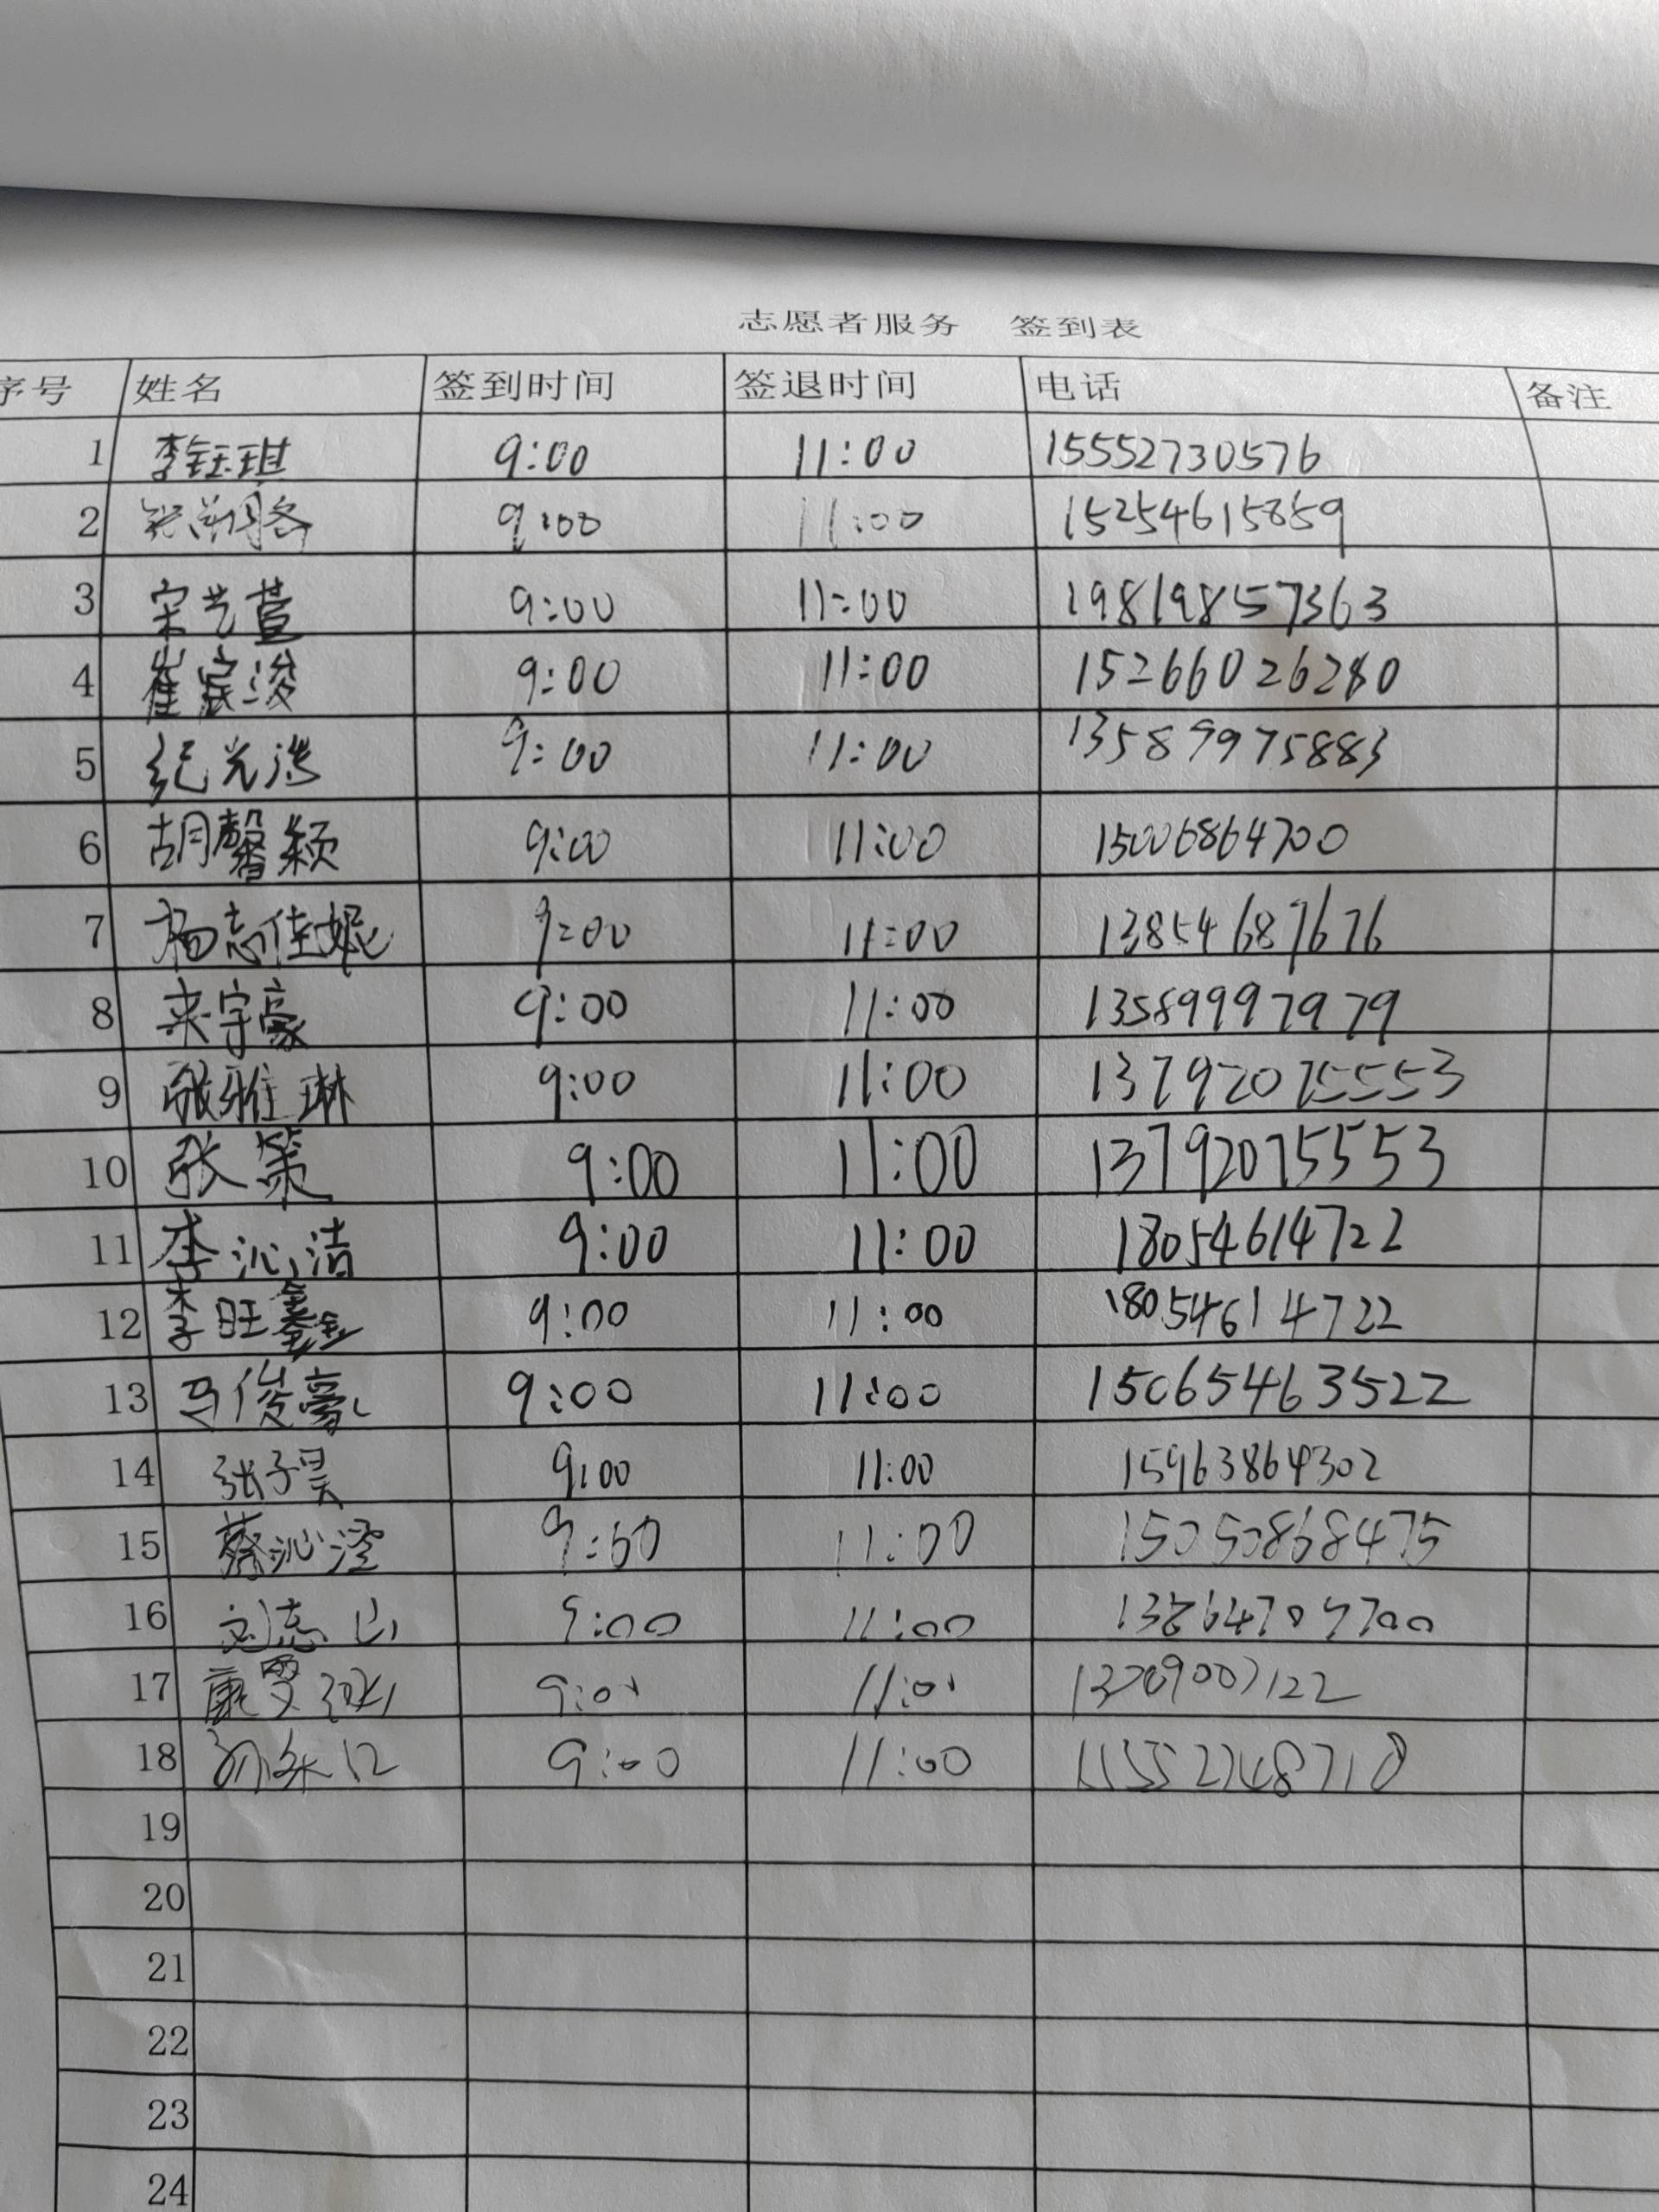 志愿者服务 签到表
序号 姓名 签到时间 签退时间 电话 备注
1 李钰琪 9:00 11:00 15552730576
2 9:00 11:00 15254615859
3 宋艺萱 9:00 11:00 19819857363
4 崔宸浚 9:00 11:00 15266026280
5 纪光 9:00 11:00 13589975883
6 胡馨颖 9:00 11:00 15006864700
7 杨志佳妮 9:00 11:00 13854687676
8 宋宇豪 9:00 11:00 13589997979
9 张雅琳 9:00 11:00 13792075553
10 张策 9:00 11:00 13792075553
11 李沁洁 9:00 11:00 18054614722
12 李旺鑫 9:00 11:00 18054614722
13 马俊豪 9:00 11:00 15065463522
14 张子昊 9:00 11:00 15963864302
15 蔡沁滢 9:00 11:00 15050868475
16 刘志山 9:00 11:00
17 康 9:00 11:00
18 9:00 11:00
19
20
21
22
23
24